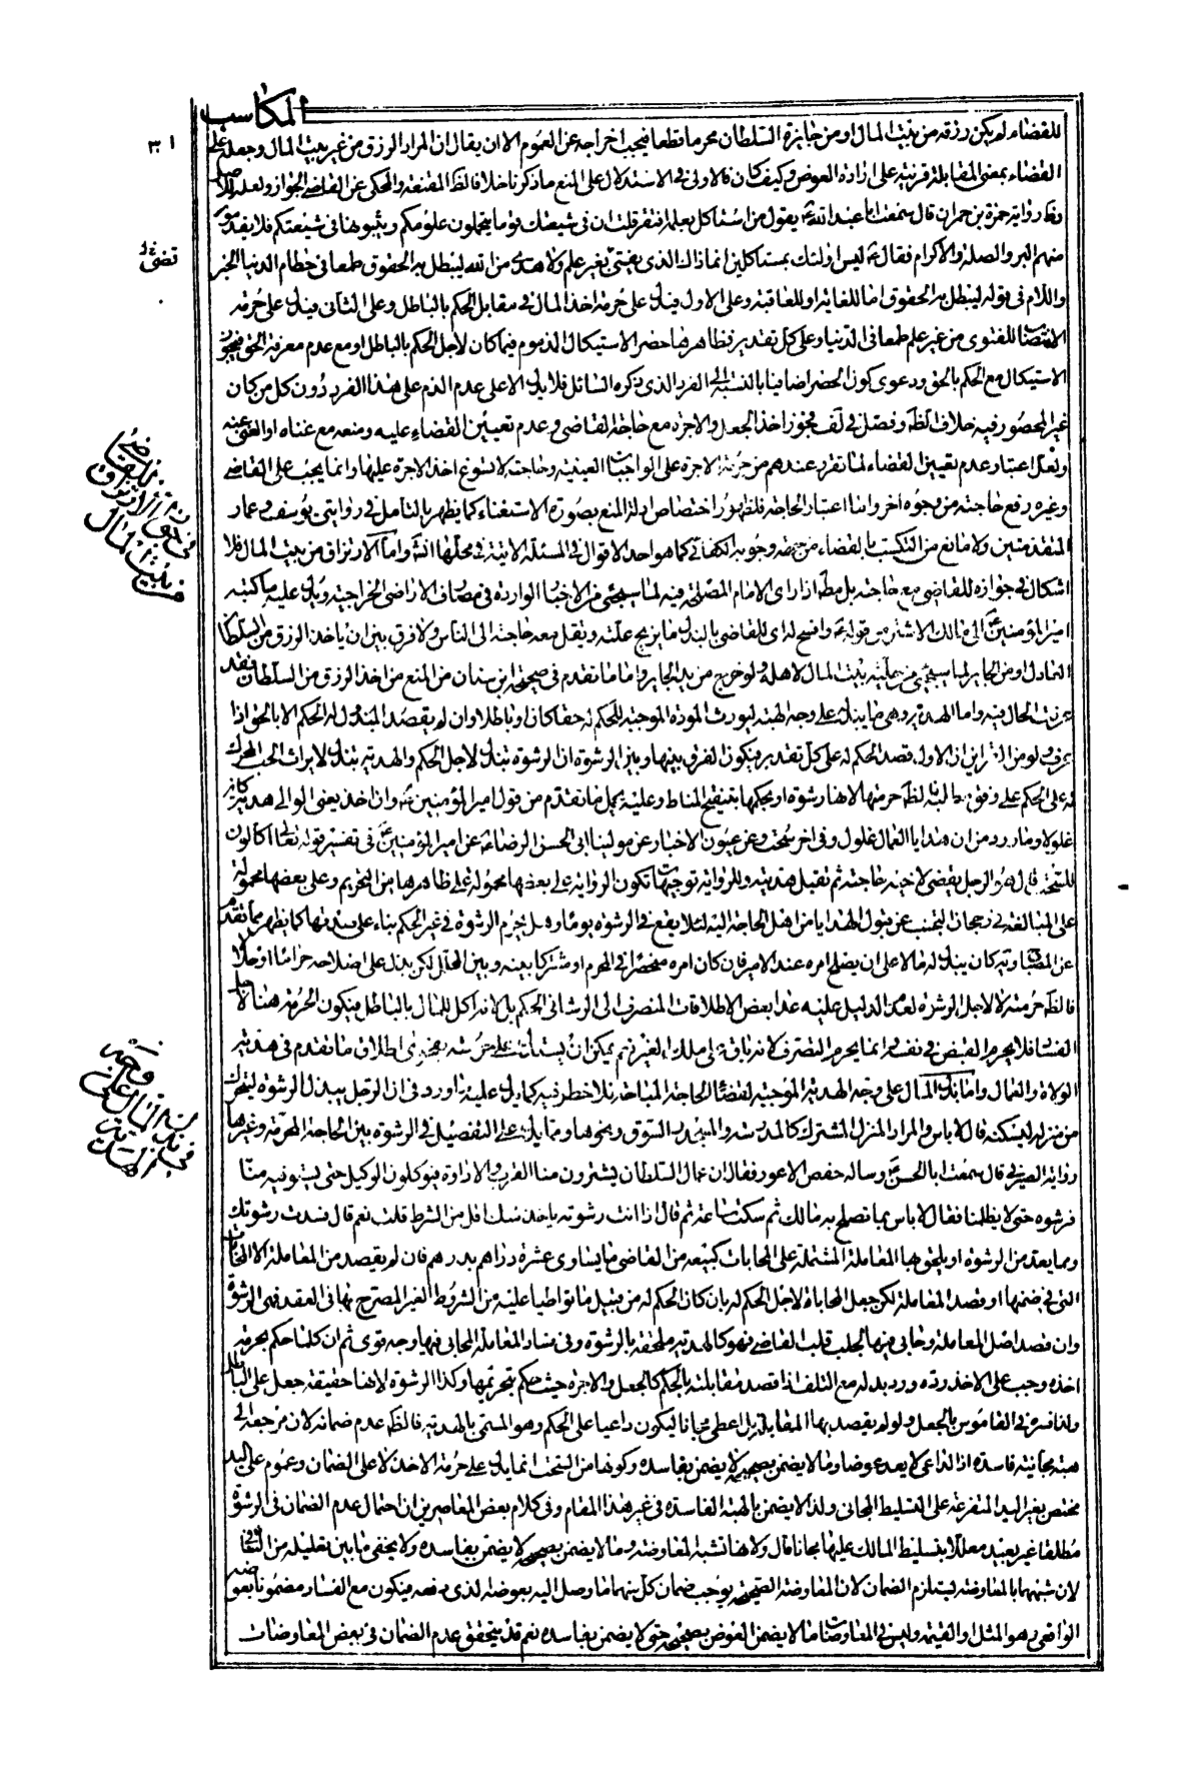 المكاسب
٣١
للقضاء لم يكن رزقه من بيت المال او من جايزة السلطان محرما قطعا فيجب اخراجه عن العموم الا ان يقال ان المراد الرزق من غير بيت المال وجعله على
القضاء بمعنى المقابلة قرينة على ارادة العوض وكيف كان فالاولى في الاستدلال على المنع ما ذكرنا خلافا لظاهر المقنعة والمحكى عن القاضي الجواز ولعله للاصل
وظاهر رواية حمزة بن حمران قال سمعت ابا عبد الله ع يقول من استاكل بعلمه افتقر قلت ان في شيعتك قوما يتحملون علومكم ويبثونها في شيعتكم فلا يعدمون
منهم البر والصلة والاكرام فقال ع ليس اولئك بمستاكلين انما ذاك الذى يفتى بغير علم ولا هدى من الله ليبطل به الحقوق طمعا في حطام الدنيا الخبر
واللام في قوله ليبطل به الحقوق اما للغاية او للعاقبة وعلى الاول فيدل على حرمة اخذ المال في مقابل الحكم بالباطل وعلى الثانى فيدل على حرمة
الانتصاب للفتوى من غير علم طمعا في الدنيا وعلى كل تقدير فظاهرها حصر الاستيكال المذموم فيما كان لاجل الحكم بالباطل او مع عدم معرفة الحق فيجوز
الاستيكال مع الحكم بالحق ودعوى كون الحصر اضافيا بالنسبة الى الفرد الذى ذكره السائل فلا يدل الا على عدم الذم على هذا الفرد دون كل من كان
غير المحصور فيه خلاف الظاهر وفصل في لف فجوز اخذ الجعل والاجرة مع حاجة القاضى وعدم تعيين القضاء عليه ومنعه مع غناه او الغنى عنه
ولعل اعتبار عدم تعيين القضاء لما تقرر عندهم من حرمة الاجرة على الواجبات العينية وحاجته لا تسوغ اخذ الاجرة عليها وانما يجب على القاضى
وغيره رفع حاجته من وجوه اخر واما اعتبار الحاجة فلظهور اختصاص ادلة المنع بصورة الاستغناء كما يظهر بالتامل في روايتى يوسف وعمار
المتقدمتين ولا مانع من التكسب بالقضاء من جهة وجوبه الكفائى كما هو احد الاقوال في المسئلة الاتية في محلها انشاء الله واما الارتزاق من بيت المال فلا
اشكال في جوازه للقاضى مع حاجته بل مطلقا اذا راى الامام المصلحة فيه لما سيجئ من الاخبار الواردة في مصارف الاراضى الخراجية ويدل عليه ما كتبه
امير المؤمنين ع الى مالك الاشتر من قوله ع وافسح له اى للقاضى بالبذل ما يزيح علته وتقل معه حاجته الى الناس ولا فرق بين ان ياخذ الرزق من السلطان
العادل او من الجاير لما سيجئ من حلية بيت المال لاهله ولو خرج من يد الجاير واما ما تقدم في صحيحة ابن سنان من المنع من اخذ الرزق من السلطان فقد
عرفت الحال فيه واما الهدية وهى ما يبذله على وجه الهبة ليورث المودة الموجبة للحكم له حقا كان او باطلا وان لم يقصد المبذول له الحكم الا بالحق اذا
عرف ولو من القراين ان الاول قصد الحكم له على كل تقدير فيكون الفرق بينها وبين الرشوة ان الرشوة تبذل لاجل الحكم والهدية تبذل لايراث الحب المحرك
له على الحكم على وفق مطلبه فالظاهر حرمتها لانها رشوة او بحكمها بتنقيح المناط وعليه يحمل ما تقدم من قول امير المؤمنين ع وان اخذ يعنى الوالى هدية كان
غلولا وما ورد من ان هدايا العمال غلول وفي اخر سحت وعن عيون الاخبار عن مولينا ابى الحسن الرضا ع عن امير المؤمنين ع في تفسير قوله تعالى اكالون
للسحت قال هو الرجل يقضى لاخيه حاجته ثم يقبل هديته وللرواية توجيهات تكون الرواية على بعضها محمولة على ظاهرها من التحريم وعلى بعضها محمولة
على المبالغة في رجحان التجنب عن قبول الهدايا من اهل الحاجة اليه لئلا يقع في الرشوة يوما وهل يحرم الرشوة في غير الحكم بناء على صدقها كما يظهر مما تقدم
عن المصباح وية كان يبذل له مالا على ان يصلح امره عند الامير فان كان امره منحصرا في المحرم او مشتركا بينه وبين المحلل لكن بذل على اصلاحه حراما او حلالا
فالظاهر حرمته لا لاجل الرشوة لعدم الدليل عليه عدا بعض الاطلاقات المنصرف الى الرشا في الحكم بل لانه اكل للمال بالباطل فيكون الحرمة هنا لاجل
الفساد فلا يحرم القبض في نفسه وانما يحرم التصرف لانه باق على ملك الغير نعم يمكن ان يستدل على حرمته بفحوى اطلاق ما تقدم في هدية
الولاة والعمال واما بذل المال على وجه الهدية الموجبة لقضاء الحاجة المباحة فلا حظر فيه كما يدل عليه ما ورد في ان الرجل يبذل الرشوة ليتحرك
من منزله ليسكنه قال لا باس والمراد المنزل المشترك كالمدرسة والمسجد والسوق ونحوها ومما يدل على التفصيل في الرشوة بين الحاجة المحرمة وغيرها
رواية الصيرفى قال سمعت ابا الحسن ع وساله حفص الاعور فقال ان عمال السلطان يشترون منا القرب والاداوة فيوكلون الوكيل حتى يستوفيه منا
فنرشوه حتى لا يظلمنا فقال لا باس بما تصلح به مالك ثم سكت ساعة ثم قال اذا انت رشوته ياخذ منك اقل من الشرط قلت نعم قال فسدت رشوتك
ومما يعد من الرشوة او يلحق بها المعاملة المشتملة على المحابات كبيعه من القاضى ما يساوى عشرة دراهم بدرهم فان لم يقصد من المعاملة الا المحابات
التى في ضمنها او قصد المعاملة لكن جعل المحاباة لاجل الحكم له بان كان الحكم له من قبيل ما تواطيا عليه من الشروط الغير المصرح بها في العقد فهى الرشوة
وان قصد اصل المعاملة وحابى فيها لجلب قلب القاضى فهو كالهدية ملحقة بالرشوة وفي فساد المعاملة المحابى فيها وجه قوى ثم ان كلما حكم بحرمة
اخذه وجب على الاخذ رده ورد بدله مع التلف اذا قصد مقابلته بالحكم كالجعل والاجرة حيث حكم بتحريمها وكذا الرشوة لانها حقيقة جعل على الباطل
ولذا فسره في القاموس بالجعل ولو لم يقصد بها المقابلة بل اعطى مجانا ليكون داعيا على الحكم وهو المسمى بالهدية فالظاهر عدم ضمانه لان مرجعه الى
هبة مجانية فاسدة اذ الداعى لا يعد عوضا وما لا يضمن بصحيحه لا يضمن بفاسده وكونها من السحت انما يدل على حرمة الاخذ لا على الضمان وعموم على اليد
مختص بغير اليد المتفرعة على التسليط المجانى ولذا لا يضمن بالهبة الفاسدة في غير هذا المقام وفي كلام بعض المعاصرين ان احتمال عدم الضمان في الرشوة
مطلقا غير بعيد معللا بتسليط المالك عليها مجانا قال ولانها تشبه المعاوضة وما لا يضمن بصحيحه لا يضمن بفاسده ولا يخفى ما بين تعليليه من التنافى
لان شبهها بالمعاوضة يستلزم الضمان لان المعاوضة الصحيحة يوجب ضمان كل منهما ما وصل اليه بعوضه الذى دفعه فيكون مع الفساد مضمونا بعوضه
الواقعى وهو المثل او القيمة وليس في المعاوضات ما لا يضمن العوض بصحيحه حتى لا يضمن بفاسده نعم قد يتحقق عدم الضمان في بعض المعاوضات
في جواز الارتزاق
من بيت المال
في بذل المال على وجه
الهدية